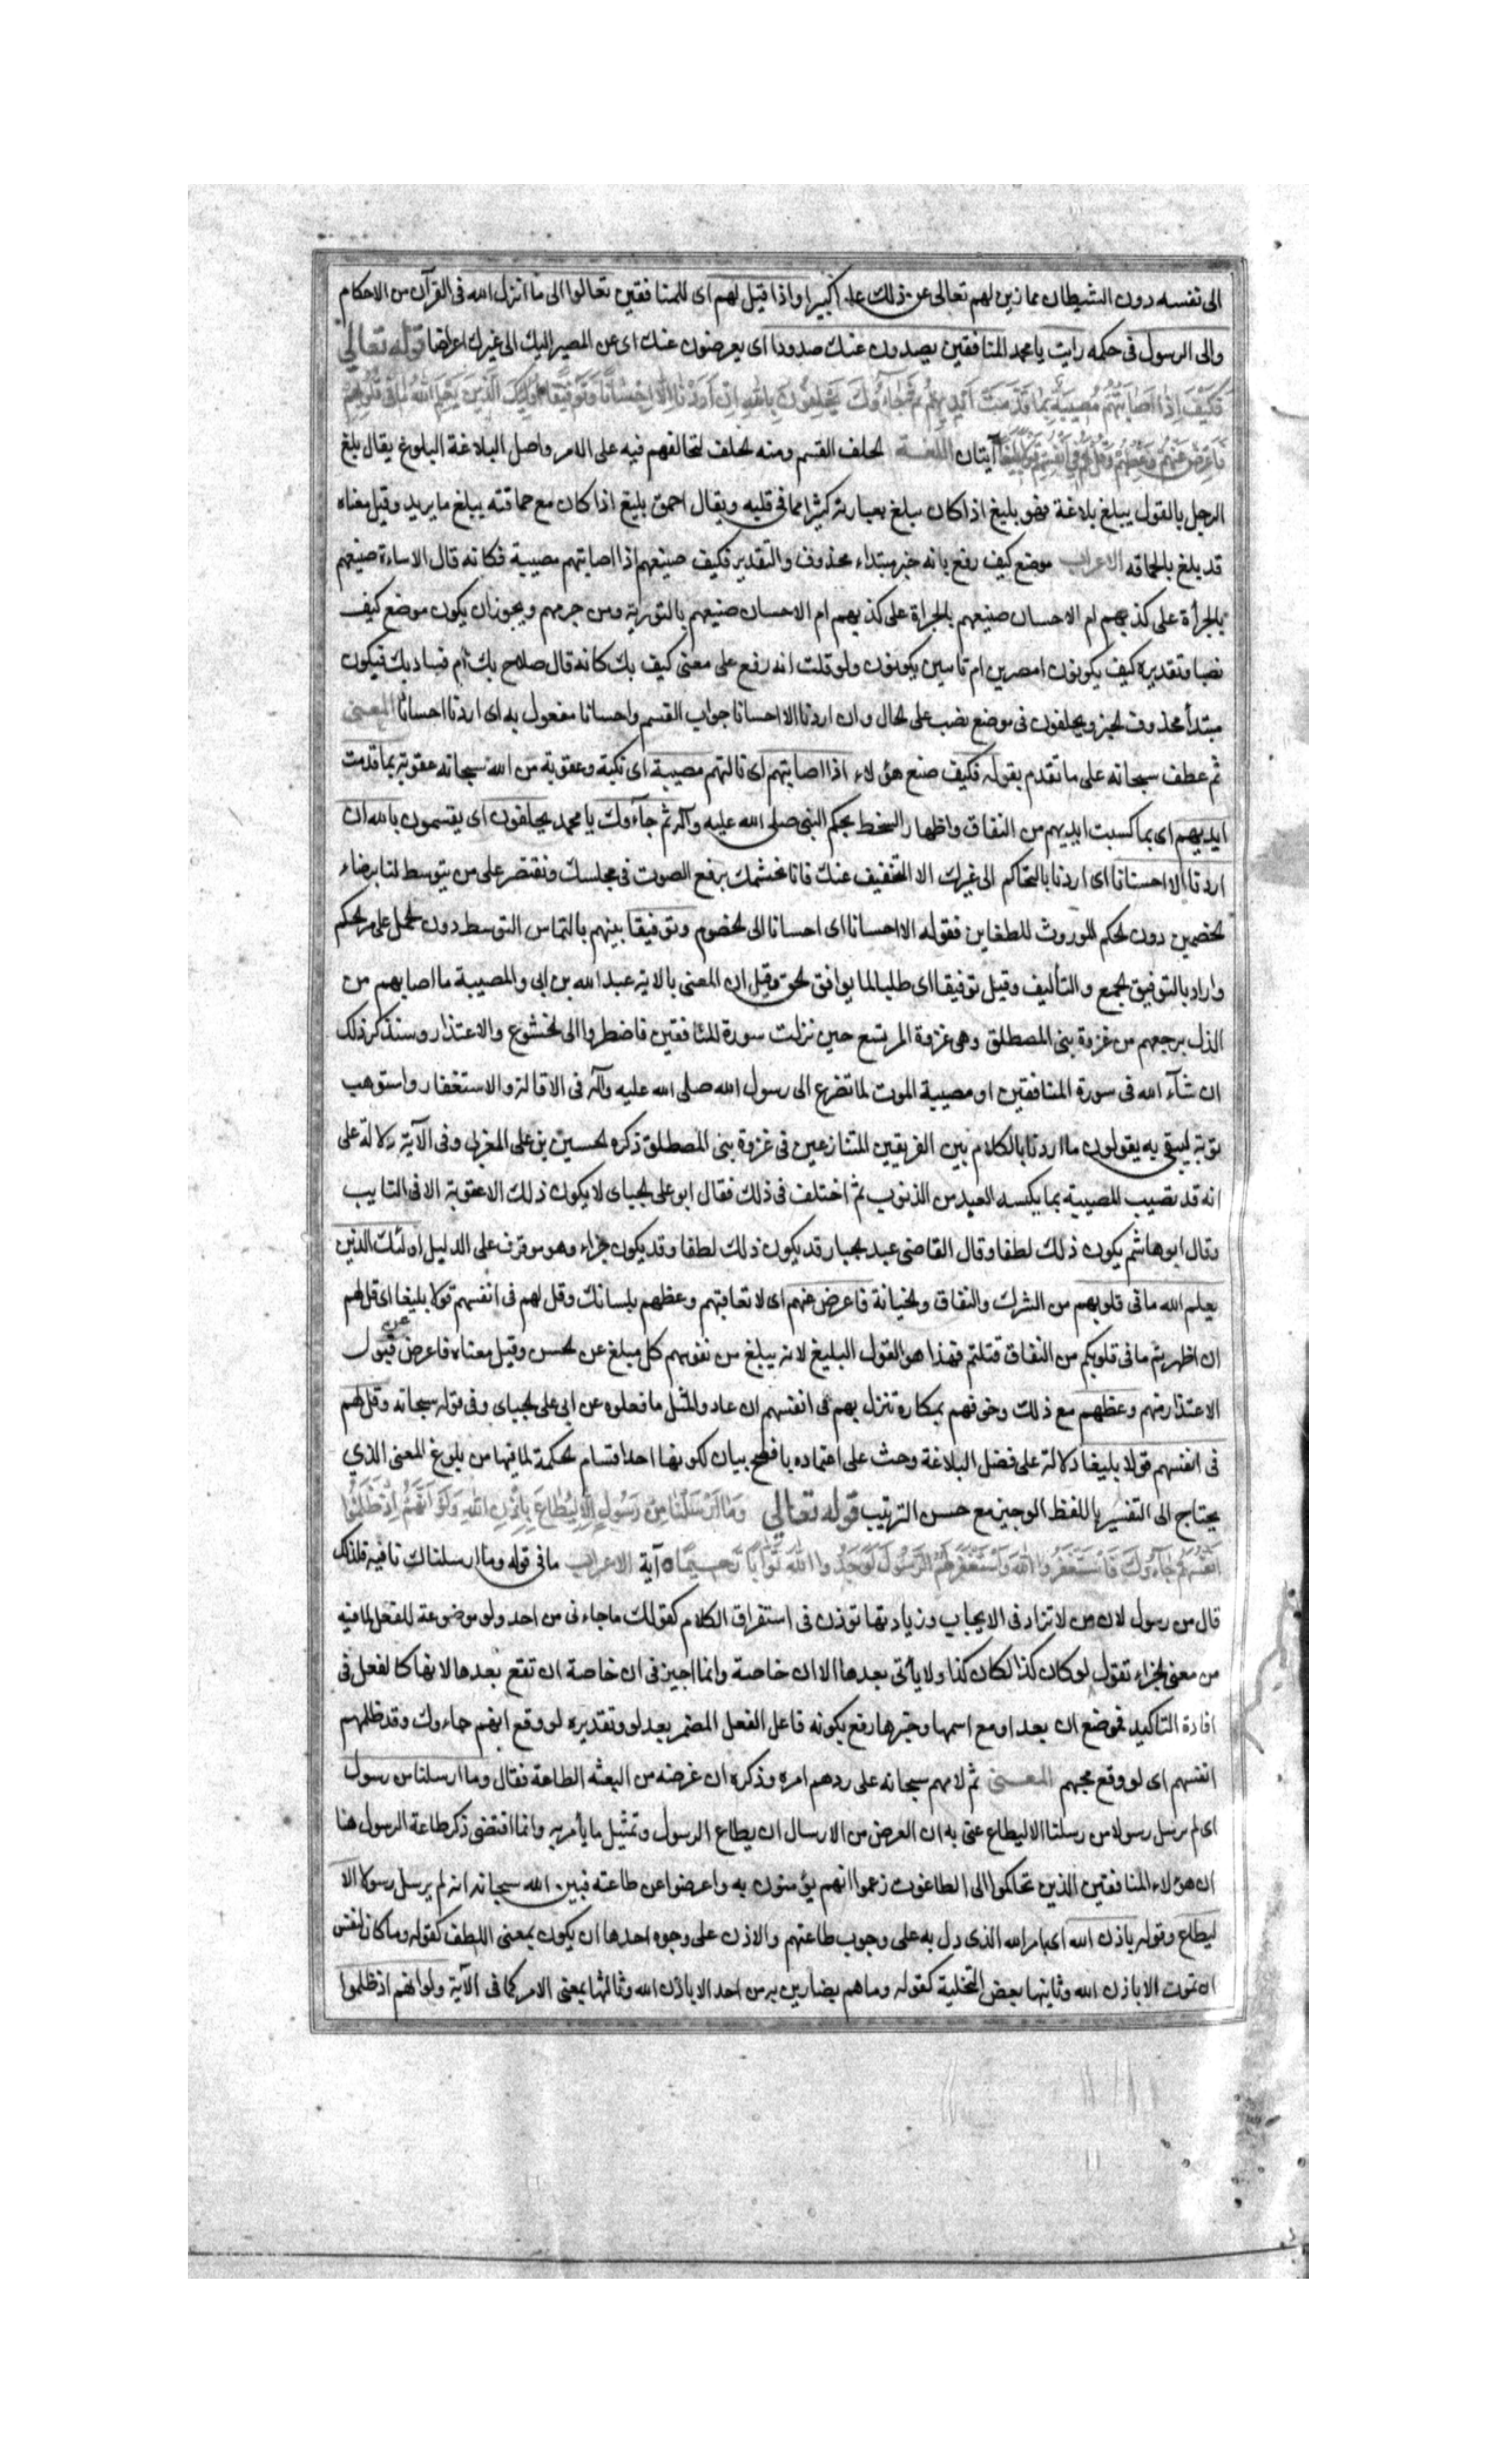 الى نفسه دون الشيطان بما زين لهم تعالى عن ذلك علوا كبيرا واذا قيل لهم اى للمنافقين تعالوا الى ما انزل الله فى القرآن من الاحكام
والى الرسول فى حكمه رايت يا محمد المنافقين يصدون عنك صدودا اى يعرضون عنك اى عن المصير اليك الى غيرك اعراضا قوله تعالى
فَكَيْفَ اِذا اَصابَتْهُمْ مُصيبَةٌ بِما قَدَّمَتْ اَيْديهِمْ ثُمَّ جاءُوكَ يَحْلِفُونَ بِاللهِ اِنْ اَرَدْنا اِلّا اِحْسانًا وَتَوْفيقًا اُولئِكَ الَّذينَ يَعْلَمُ اللهُ ما فى قُلُوبِهِمْ
فَاَعْرِضْ عَنْهُمْ وَعِظْهُمْ وَقُلْ لَهُمْ فى اَنْفُسِهِمْ قَوْلًا بَليغًا آيتان اللغة الحلف القسم ومنه الحلف لتحالفهم فيه على الامر واصل البلاغة البلوغ يقال بلغ
الرجل بالقول يبلغ بلاغة فهو بليغ اذا كان يبلغ بعبارته كثيرا مما فى قلبه ويقال احمق بليغ اذا كان مع حماقته يبلغ ما يريد وقيل معناه
قد بلغ بالحماقه الاعراب موضع كيف رفع بانه خبر مبتداء محذوف والتقدير فكيف صنيعهم اذا اصابتهم مصيبة فكانه قال الاساءة صنيعهم
بالجرأة على كذبهم ام الاحسان صنيعهم بالجراة على كذبهم ام الاحسان صنيعهم بالتوبة من جرمهم ويجوز ان يكون موضع كيف
نصبا وتقديره كيف يكونون امصرين ام تائبين يكونون ولو قلت انه رفع على معنى كيف بك كانه قال صلاح بك ام فساد بك فيكون
مبتدأ محذوف الخبر ويحلفون فى موضع نصب على الحال وان اردنا الا احسانا جواب القسم واحسانا مفعول به اى اردنا احسانا المعنى
ثم عطف سبحانه على ما تقدم بقوله فكيف صنع هؤلاء اذا اصابتهم اى نالتهم مصيبة اى نكبة وعقوبة من الله سبحانه عقوبة بما قدمت
ايديهم اى بما كسبت ايديهم من النفاق واظهار السخط بحكم النبى صلى الله عليه وآله ثم جآءوك يا محمد يحلفون اى يقسمون بالله ان
اردنا الا احسانا اى اردنا بالتحاكم الى غيرك الا التخفيف عنك فانا نحشمك برفع الصوت فى مجلسك ونقتصر على من يتوسط لنا برضاء
الخصمين دون الحكم المورث للطغاين فقوله الا احسانا اى احسانا الى الخصوم وتوفيقا بينهم بالتماس التوسط دون الحمل على مر الحكم
واراد بالتوفيق الجمع والتأليف وقيل توفيقا اى طلبا لما يوافق الحق وقيل ان المعنى بالاية عبد الله بن ابى والمصيبة ما اصابهم من
الذل برجعهم من غزوة بنى المصطلق وهى غزوة المريسع حين نزلت سورة المنافقين فاضطروا الى الخشوع والاعتذار وسنذكر ذلك
ان شآء الله فى سورة المنافقين او مصيبة الموت لما تضرع الى رسول الله صلى الله عليه وآله فى الاقالة والاستغفار واستوهب
ثوبه ليتقى به يقولون ما اردنا بالكلام بين الفريقين المتنازعين فى غزوة بنى المصطلق ذكره الحسين بن على المغربى وفى الآية دلالة على
انه قد تصيب المصيبة بما يكسبه العبد من الذنوب ثم اختلف فى ذلك فقال ابو على الجباى لا يكون ذلك الا عقوبة الا فى التايب
وقال ابو هاشم يكون ذلك لطفا وقال القاضى عبد الجبار قد يكون ذلك لطفا وقد يكون جزاء وهو موقوف على الدليل اولئك الذين
يعلم الله ما فى قلوبهم من الشرك والنفاق والخيانة فاعرض عنهم اى لا تعاقبهم وعظهم بلسانك وقل لهم فى انفسهم قولا بليغا اى قل لهم
ان اظهرتم ما فى قلوبكم من النفاق قتلتم فهذا هو القول البليغ لانه يبلغ من نفوسهم كل مبلغ عن الحسن وقيل معناه فاعرض عن قبول
الاعتذار منهم وعظهم مع ذلك وخوفهم بمكاره تنزل بهم فى انفسهم ان عادوا لمثل ما فعلوه عن ابى على الجباى وفى قوله سبحانه وقل لهم
فى انفسهم قولا بليغا دلالة على فضل البلاغة وحث على اعتماده بافصح بيان لكونها احد اقسام الحكمة لما فيها من بلوغ المعنى الذي
يحتاج الى التفسير باللفظ الوجيز مع حسن الترتيب قوله تعالى وَما اَرْسَلْنا مِنْ رَسُولٍ اِلّا لِيُطاعَ بِاِذْنِ اللهِ وَلَوْ اَنَّهُمْ اِذْ ظَلَمُوا
اَنْفُسَهُمْ جاءُوكَ فَاسْتَغْفَرُوا اللهَ وَاسْتَغْفَرَ لَهُمُ الرَّسُولُ لَوَجَدُوا اللهَ تَوّابًا رَحيمًا آية الاعراب ما فى قوله وما ارسلناك نافية فلذلك
قال من رسول لان من لا تزاد فى الايجاب وزيادتها توذن فى استغراق الكلام كقولك ما جاءنى من احد ولو موضوعة للفعل لما فيه
من معنى الجزاء تقول لو كان كذا لكان كذا ولا يأتى بعدها الا ان خاصة وانما اجيز فى ان خاصة ان تقع بعدها لانها كالفعل فى
افادة التاكيد فموضع ان بعد لو مع اسمها وخبرها رفع بكونه فاعل الفعل المضمر بعد لو وتقديره لو وقع انهم جاءوك وقد ظلمهم
انفسهم اى لو وقع مجيهم المعنى ثم لامهم سبحانه على ردهم امره وذكره ان غرضه من البعثه الطاعة فقال وما ارسلنا من رسول
اى لم نرسل رسولا من رسلنا الا ليطاع عنى به ان الغرض من الارسال ان يطاع الرسول وتمثيل ما يأمر به وانما اقتضى ذكر طاعة الرسول هنا
ان هؤلاء المنافقين الذين تحاكموا الى الطاغوت زعموا انهم يؤمنون به واعرضوا عن طاعته فبين الله سبحانه انه لم يرسل رسولا الا
ليطاع وقوله باذن الله اى بامر الله الذى دل به على وجوب طاعتهم والاذن على وجوه احدها ان يكون بمعنى اللطف كقوله وما كان لنفس
ان تموت الا باذن الله وثانيها بعض التخلية كقوله وما هم بضارين به من احد الا باذن الله وثالثها بمعنى الامر كما فى الآية ولو انهم اذ ظلموا